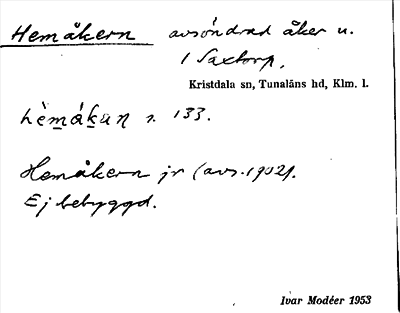 Hemåkern avsöndrad åker u.
1 Saxtorp.
Kristdala sn, Tunaläns hd, Klm. l.
hèmákan s. 133.
Hemåkern jr (avs. 1902).
Ej bebyggd.
Ivar Modéer 1953